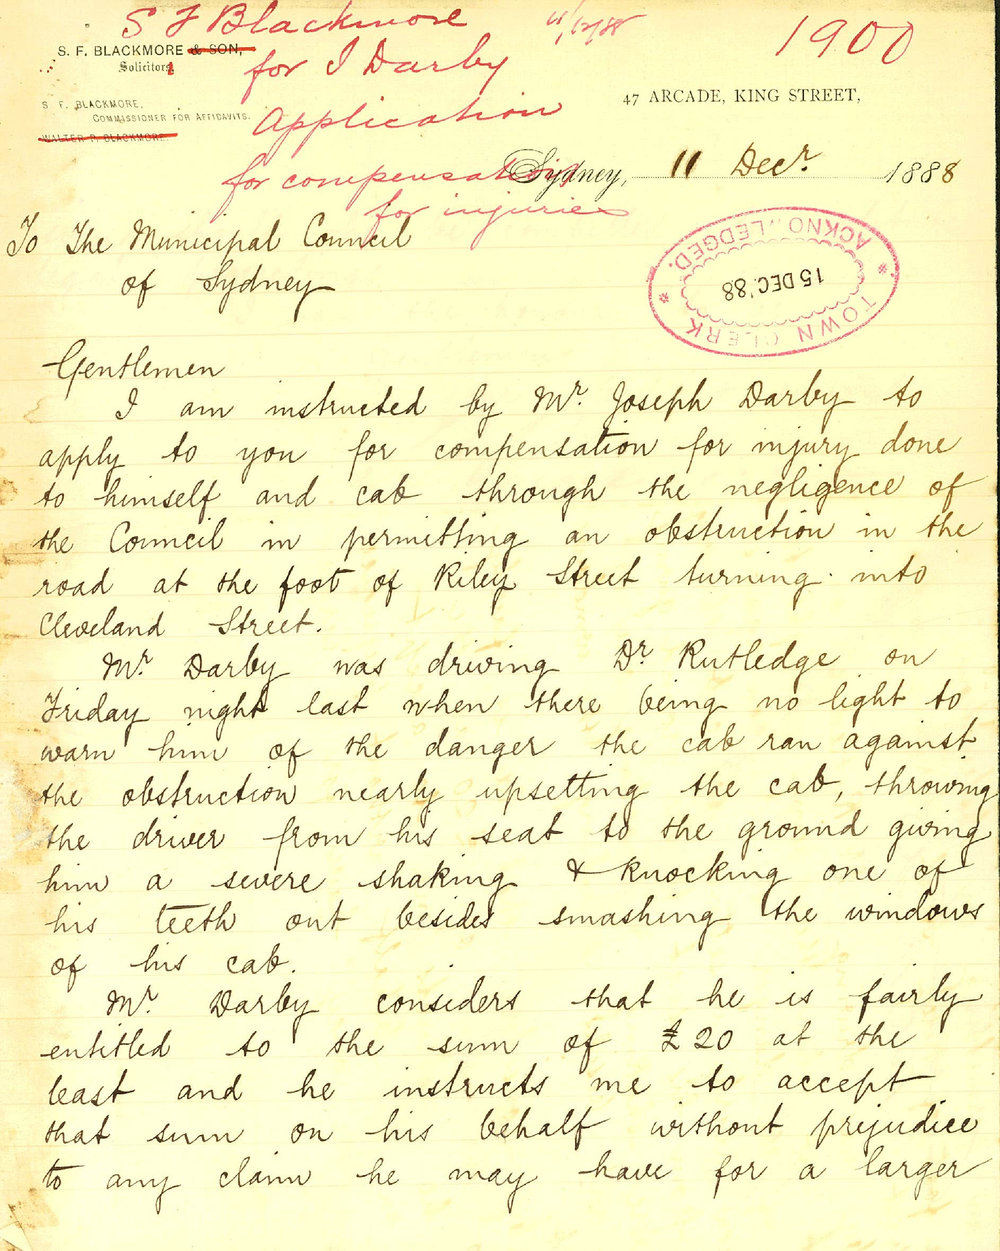 S F Blackmore
11/12/88
1900
for J Darby
Application
for compensation
for injuries
S. F. BLACKMORE & SON,
Solicitors
S. F. BLACKMORE,
COMMISSIONER FOR AFFIDAVITS.
WALTER P. BLACKMORE.
47 ARCADE, KING STREET,
Sydney, 11 Decr. 1888
TOWN CLERK
ACKNOWLEDGED.
15 DEC. 88
To The Municipal Council
of Sydney
Gentlemen
I am instructed by Mr. Joseph Darby to
apply to you for compensation for injury done
to himself and cab through the negligence of
the Council in permitting an obstruction in the
road at the foot of Riley Street turning into
Cleveland Street.
Mr. Darby was driving Dr. Rutledge on
Friday night last when there being no light to
warn him of the danger the cab ran against
the obstruction nearly upsetting the cab, throwing
the driver from his seat to the ground giving
him a severe shaking & knocking one of
his teeth out besides smashing the windows
of his cab.
Mr. Darby considers that he is fairly
entitled to the sum of £20 at the
least and he instructs me to accept
that sum on his behalf without prejudice
to any claim he may have for a larger